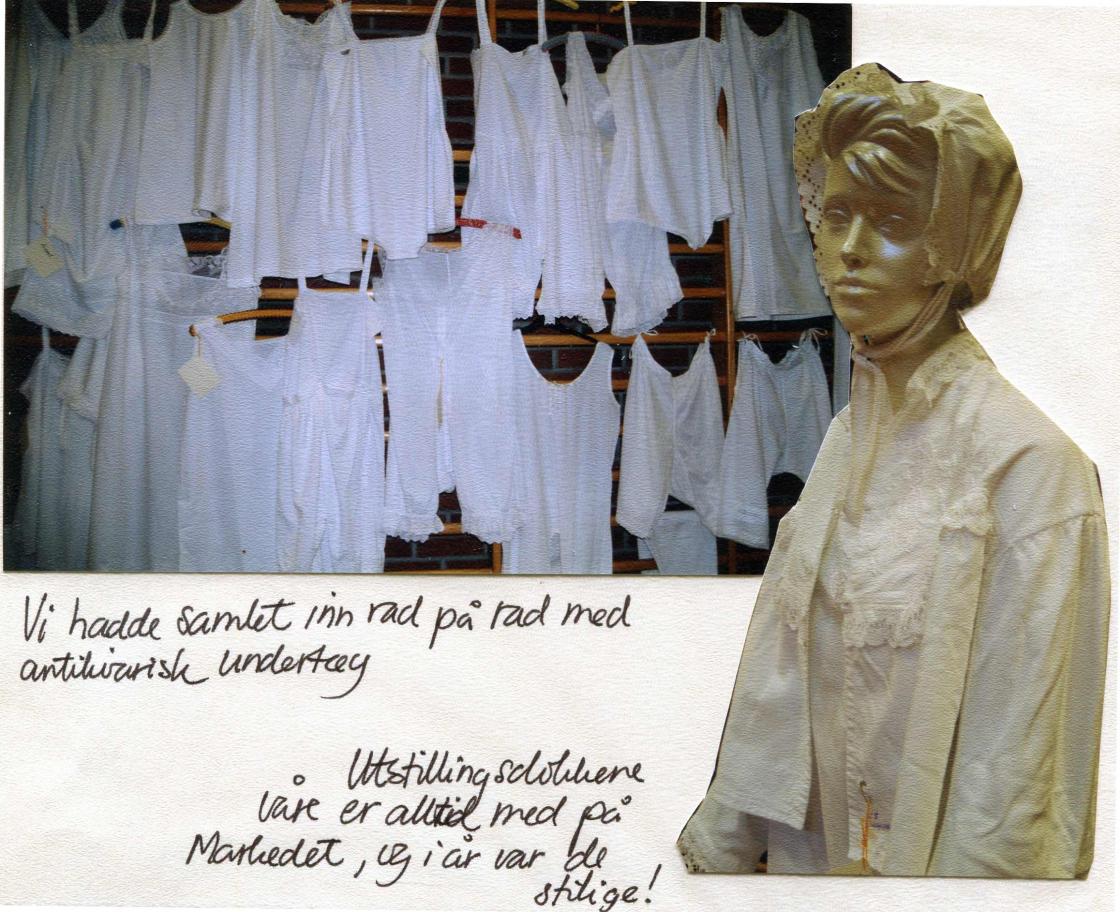 Vi hadde samlet inn rad på rad med
antikvarisk undertøy
Utstillingsdukkene
våre er alltid med på
Markedet, og i år var de
stilige!